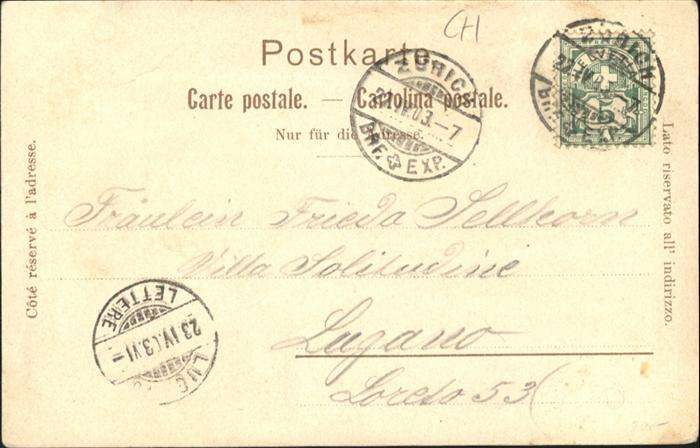 CH
Postkarte.
Carte postale. — Cartolina postale.
Nur für die Adresse.
Côté réservé à l'adresse.
Lato riservato all' indirizzo.
ZÜRICH
IV.03.-7
BRF. EXP.
ZÜRICH
EXP.
Fräulein Frieda Sellkorn
Villa Solitudine
Lugano
Loreto 53
LETTERE
23 IV.03.VI